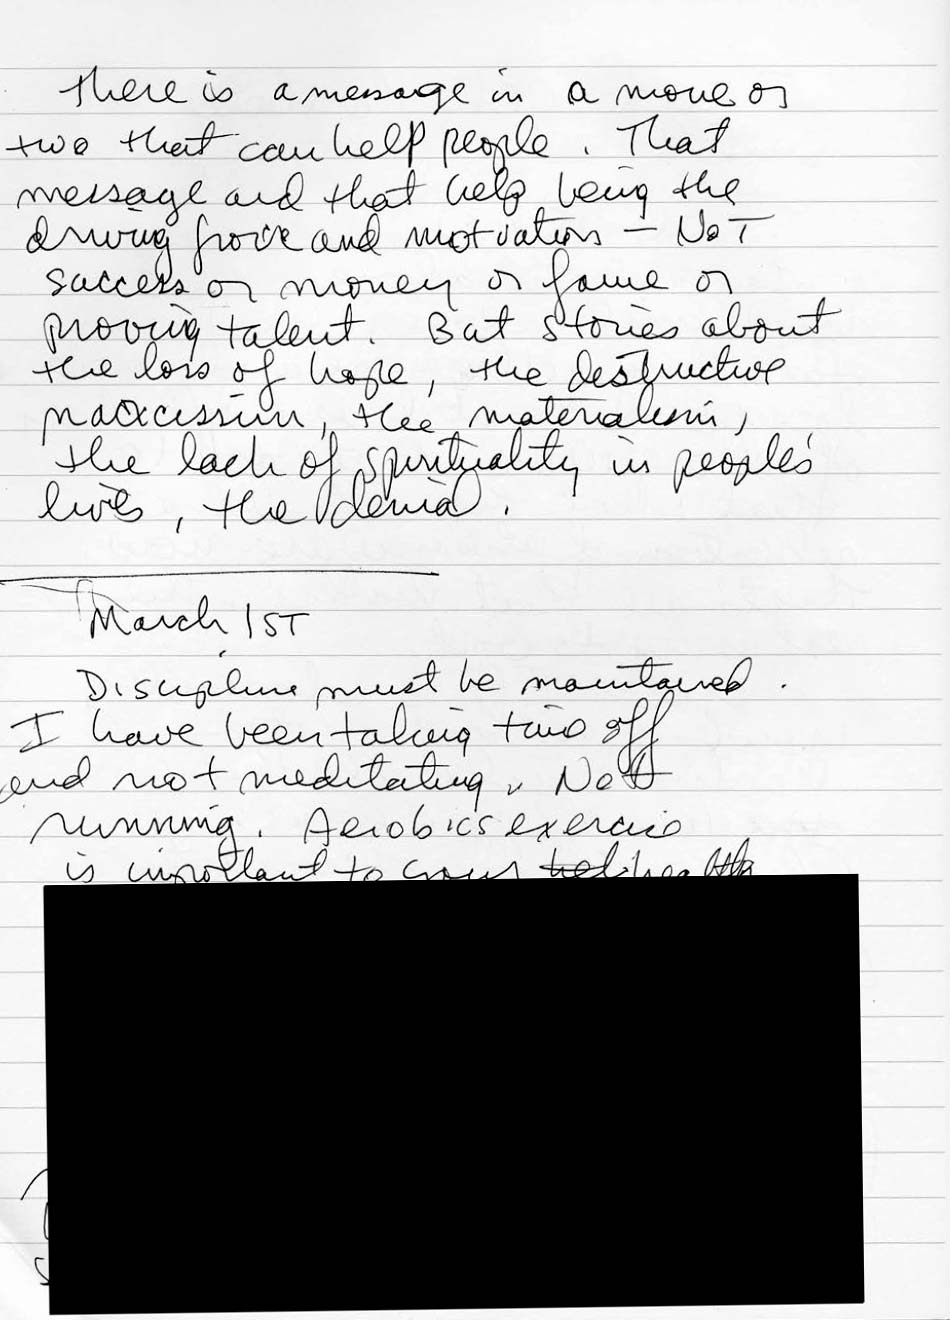 there is a message in a movie or
two that can help people. That
message and that help being the
driving force and motivation – NOT
success or money or fame or
proving talent. But stories about
the loss of hope, the destructive
narcissism, the materialism,
the lack of spirituality in people's
lives, the denial.
March 1ST
Discipline must be maintained.
I have been taking time off
and not meditating. Not
running. Aerobics exercise
is important to your health